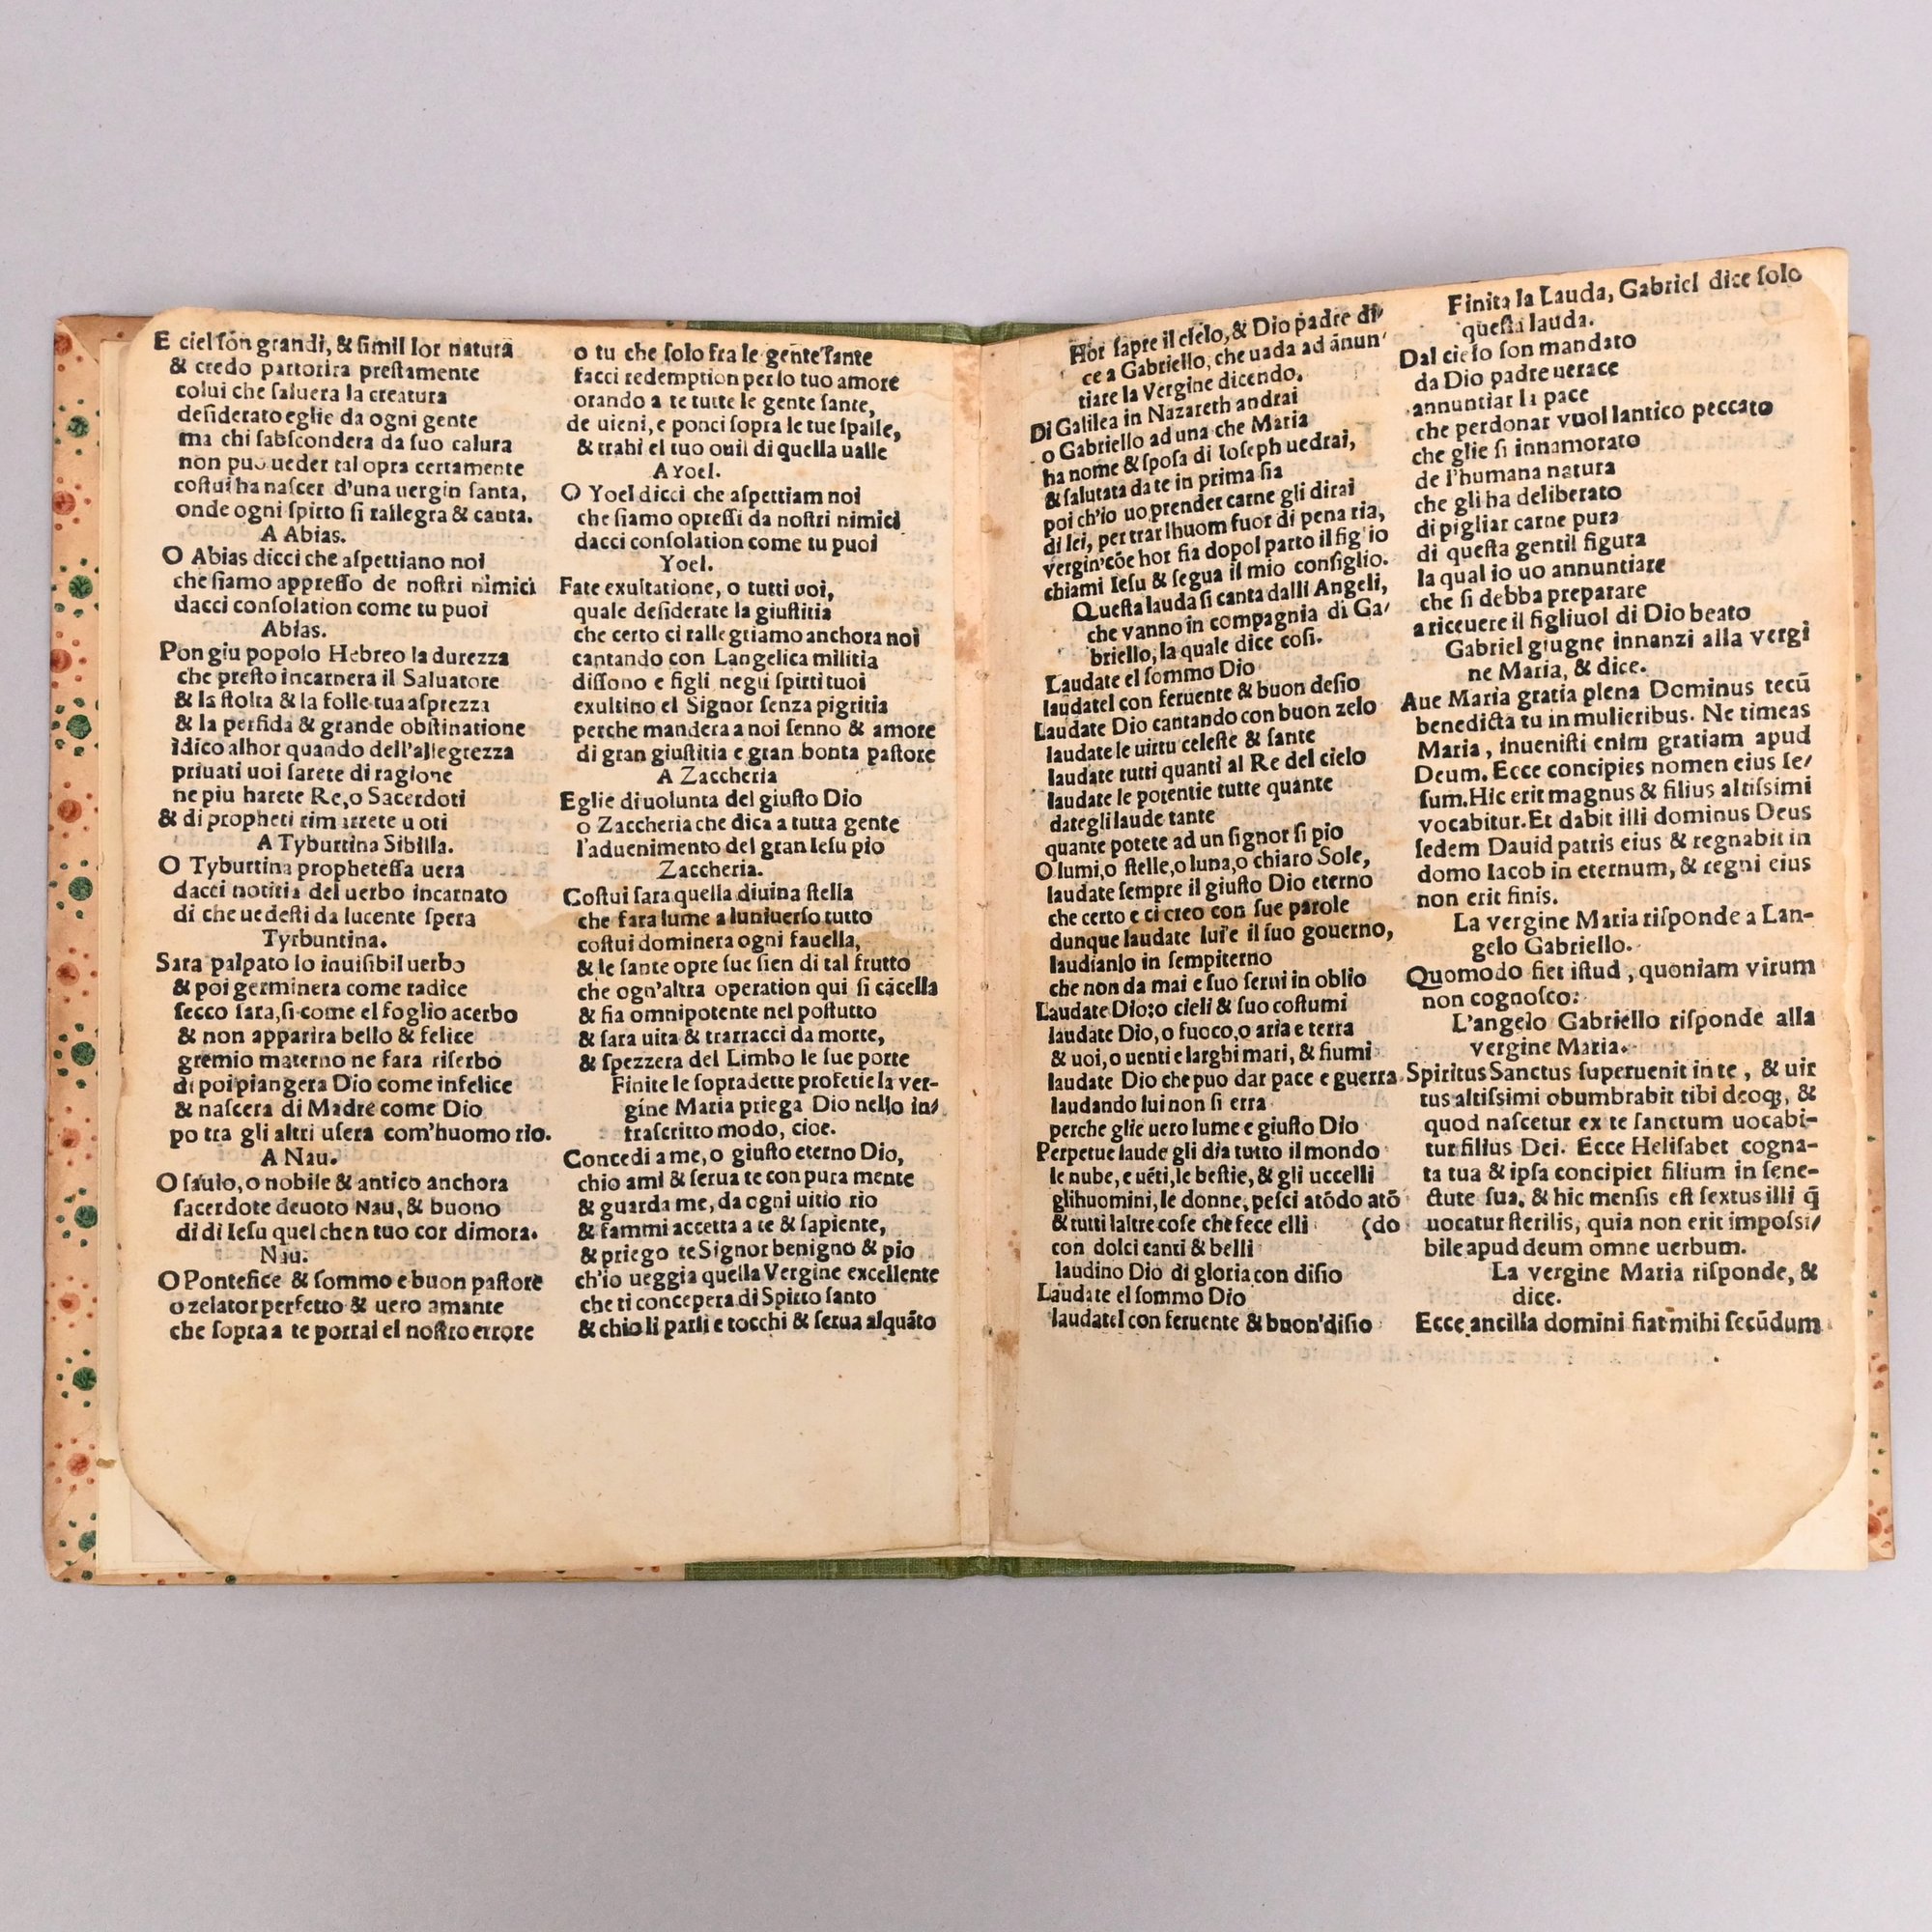 E ciel ſon grandi, & ſimil lor natura
& credo partorira preſtamente
colui che ſaluera la creatura
deſiderato eglie da ogni gente
ma chi ſabſcondera da ſuo calura
non puo ueder tal opra certamente
coſtui ha naſcer d'una uergin ſanta,
onde ogni ſpirto ſi rallegra & canta.
A Abias.
O Abias dicci che aſpettiano noi
che ſiamo appreſſo de noſtri nimici
dacci conſolation come tu puoi
Abias.
Pon giu popolo Hebreo la durezza
che preſto incarnera il Saluatore
& la ſtolta & la folle tua aſprezza
& la perfida & grande obſtinatione
ïdico alhor quando dell'allegrezza
priuati uoi ſarete di ragione
ne piu harete Re, o Sacerdoti
& di propheti rimarrete uoti
A Tyburtina Sibilla.
O Tyburtina propheteſſa uera
dacci notitia del uerbo incarnato
di che uedeſti da lucente ſpera
Tyrbuntina.
Sara palpato lo inuiſibil uerbo
& poi germinera come radice
ſecco ſara, ſi come el foglio acerbo
& non apparira bello & felice
gremio materno ne fara riſerbo
di poi piangera Dio come infelice
& naſcera di Madre come Dio
po tra gli altri uſera com'huomo rio.
A Nau.
O ſaulo, o nobile & antico anchora
ſacerdote deuoto Nau, & buono
di di Ieſu quel chen tuo cor dimora.
Nau.
O Pontefice & ſommo e buon paſtore
o zelator perfetto & uero amante
che ſopra a te porrai el noſtro errore
o tu che ſolo fra le gente ſante
facci redemption per lo tuo amore
orando a te tutte le gente ſante,
de uieni, e ponci ſopra le tue ſpalle,
& trahi el tuo ouil di quella ualle
A Yoel.
O Yoel dicci che aſpettiam noi
che ſiamo opreſſi da noſtri nimici
dacci conſolation come tu puoi
Yoel.
Fate exultatione, o tutti uoi,
quale deſiderate la giuſtitia
che certo ci rallegriamo anchora noi
cantando con Langelica militia
diſſono e figli negli ſpirti tuoi
exultino el Signor ſenza pigritia
perche mandera a noi ſenno & amore
di gran giuſtitia e gran bonta paſtore
A Zaccheria
Eglie di uolunta del giuſto Dio
o Zaccheria che dica a tutta gente
l'aduenimento del gran Ieſu pio
Zaccheria.
Coſtui ſara quella diuina ſtella
che fara lume a luniuerſo tutto
coſtui dominera ogni fauella,
& le ſante opre ſue ſien di tal frutto
che ogn'altra operation qui ſi cãcella
& fia omnipotente nel poſtutto
& ſara uita & trarracci da morte,
& ſpezzera del Limbo le ſue porte
Finite le ſopradette profetie la ver-
gine Maria priega Dio nello in/
fraſcritto modo, cioe.
Concedi a me, o giuſto eterno Dio,
chio ami & ſerua te con pura mente
& guarda me, da ogni uitio rio
& fammi accetta a te & ſapiente,
& priego te Signor benigno & pio
ch'io ueggia quella Vergine excellente
che ti concepera di Spirto ſanto
& chio li parli e tocchi & ſerua alquãto
Hor ſapre il cielo, & Dio padre di/
ce a Gabriello, che uada ad ãnun'
tiare la Vergine dicendo.
Di Galilea in Nazareth andrai
o Gabriello ad una che Maria
ha nome & ſpoſa di Ioſeph uedrai,
& ſalutata da te in prima ſia
poi ch'io uo prender carne gli dirai
di lei, per trar lhuom fuor di pena ria,
vergin'cõe hor fia dopol parto il fig io
chiami Ieſu & ſegua il mio conſiglio.
Queſta lauda ſi canta dalli Angeli,
che vanno in compagnia di Ga/
briello, la quale dice coſi.
Laudate el ſommo Dio
laudatel con feruente & buon deſio
Laudate Dio cantando con buon zelo
laudate le uirtu celeſte & ſante
laudate tutti quanti al Re del cielo
laudate le potentie tutte quante
dategli laude tante
quante potete ad un ſignor ſi pio
O lumi, o ſtelle, o luna, o chiaro Sole,
laudate ſempre il giuſto Dio eterno
che certo e ci creo con ſue parole
dunque laudate lui'e il ſuo gouerno,
laudianlo in ſempiterno
che non da mai e ſuo ſerui in oblio
Laudate Dio: o cieli & ſuo coſtumi
laudate Dio, o fuoco, o aria e terra
& uoi, o uenti e larghi mari, & fiumi
laudate Dio che puo dar pace e guerra
laudando lui non ſi erra
perche glie uero lume e giuſto Dio
Perpetue laude gli dia tutto il mondo
le nube, e uẽti, le beſtie, & gli uccelli
glihuomini, le donne, peſci atõdo atõ
& tutti laltre coſe che fece elli (do
con dolci canti & belli
laudino Dio di gloria con diſio
Laudate el ſommo Dio
laudatel con feruente & buon'diſio
Finita la Lauda, Gabriel dice ſolo
queſta lauda.
Dal cielo ſon mandato
da Dio padre uerace
annuntiar la pace
che perdonar vuol lantico peccato
che glie ſi innamorato
de l'humana natura
che gli ha deliberato
di pigliar carne pura
di queſta gentil figura
la qual io uo annuntiare
che ſi debba preparare
a riceuere il figliuol di Dio beato
Gabriel giugne innanzi alla vergi
ne Maria, & dice.
Aue Maria gratia plena Dominus tecũ
benedicta tu in mulieribus. Ne timeas
Maria, inueniſti enim gratiam apud
Deum. Ecce concipies nomen eius Ie/
ſum. Hic erit magnus & filius altiſsimi
vocabitur. Et dabit illi dominus Deus
ſedem Dauid patris eius & regnabit in
domo Iacob in eternum, & regni eius
non erit finis.
La vergine Maria riſponde a Lan-
gelo Gabriello.
Quomodo fiet iſtud, quoniam virum
non cognoſco.
L'angelo Gabriello riſponde alla
vergine Maria.
Spiritus Sanctus ſuperuenit in te, & uir
tus altiſsimi obumbrabit tibi deoqꝫ, &
quod naſcetur ex te ſanctum uocabi-
tur filius Dei. Ecce Heliſabet cogna-
ta tua & ipſa concipiet filium in ſene-
ctute ſua. & hic menſis eſt ſextus illi q̃
uocatur ſterilis, quia non erit impoſsi/
bile apud deum omne uerbum.
La vergine Maria riſponde, &
dice.
Ecce ancilla domini fiat mihi ſecũdum